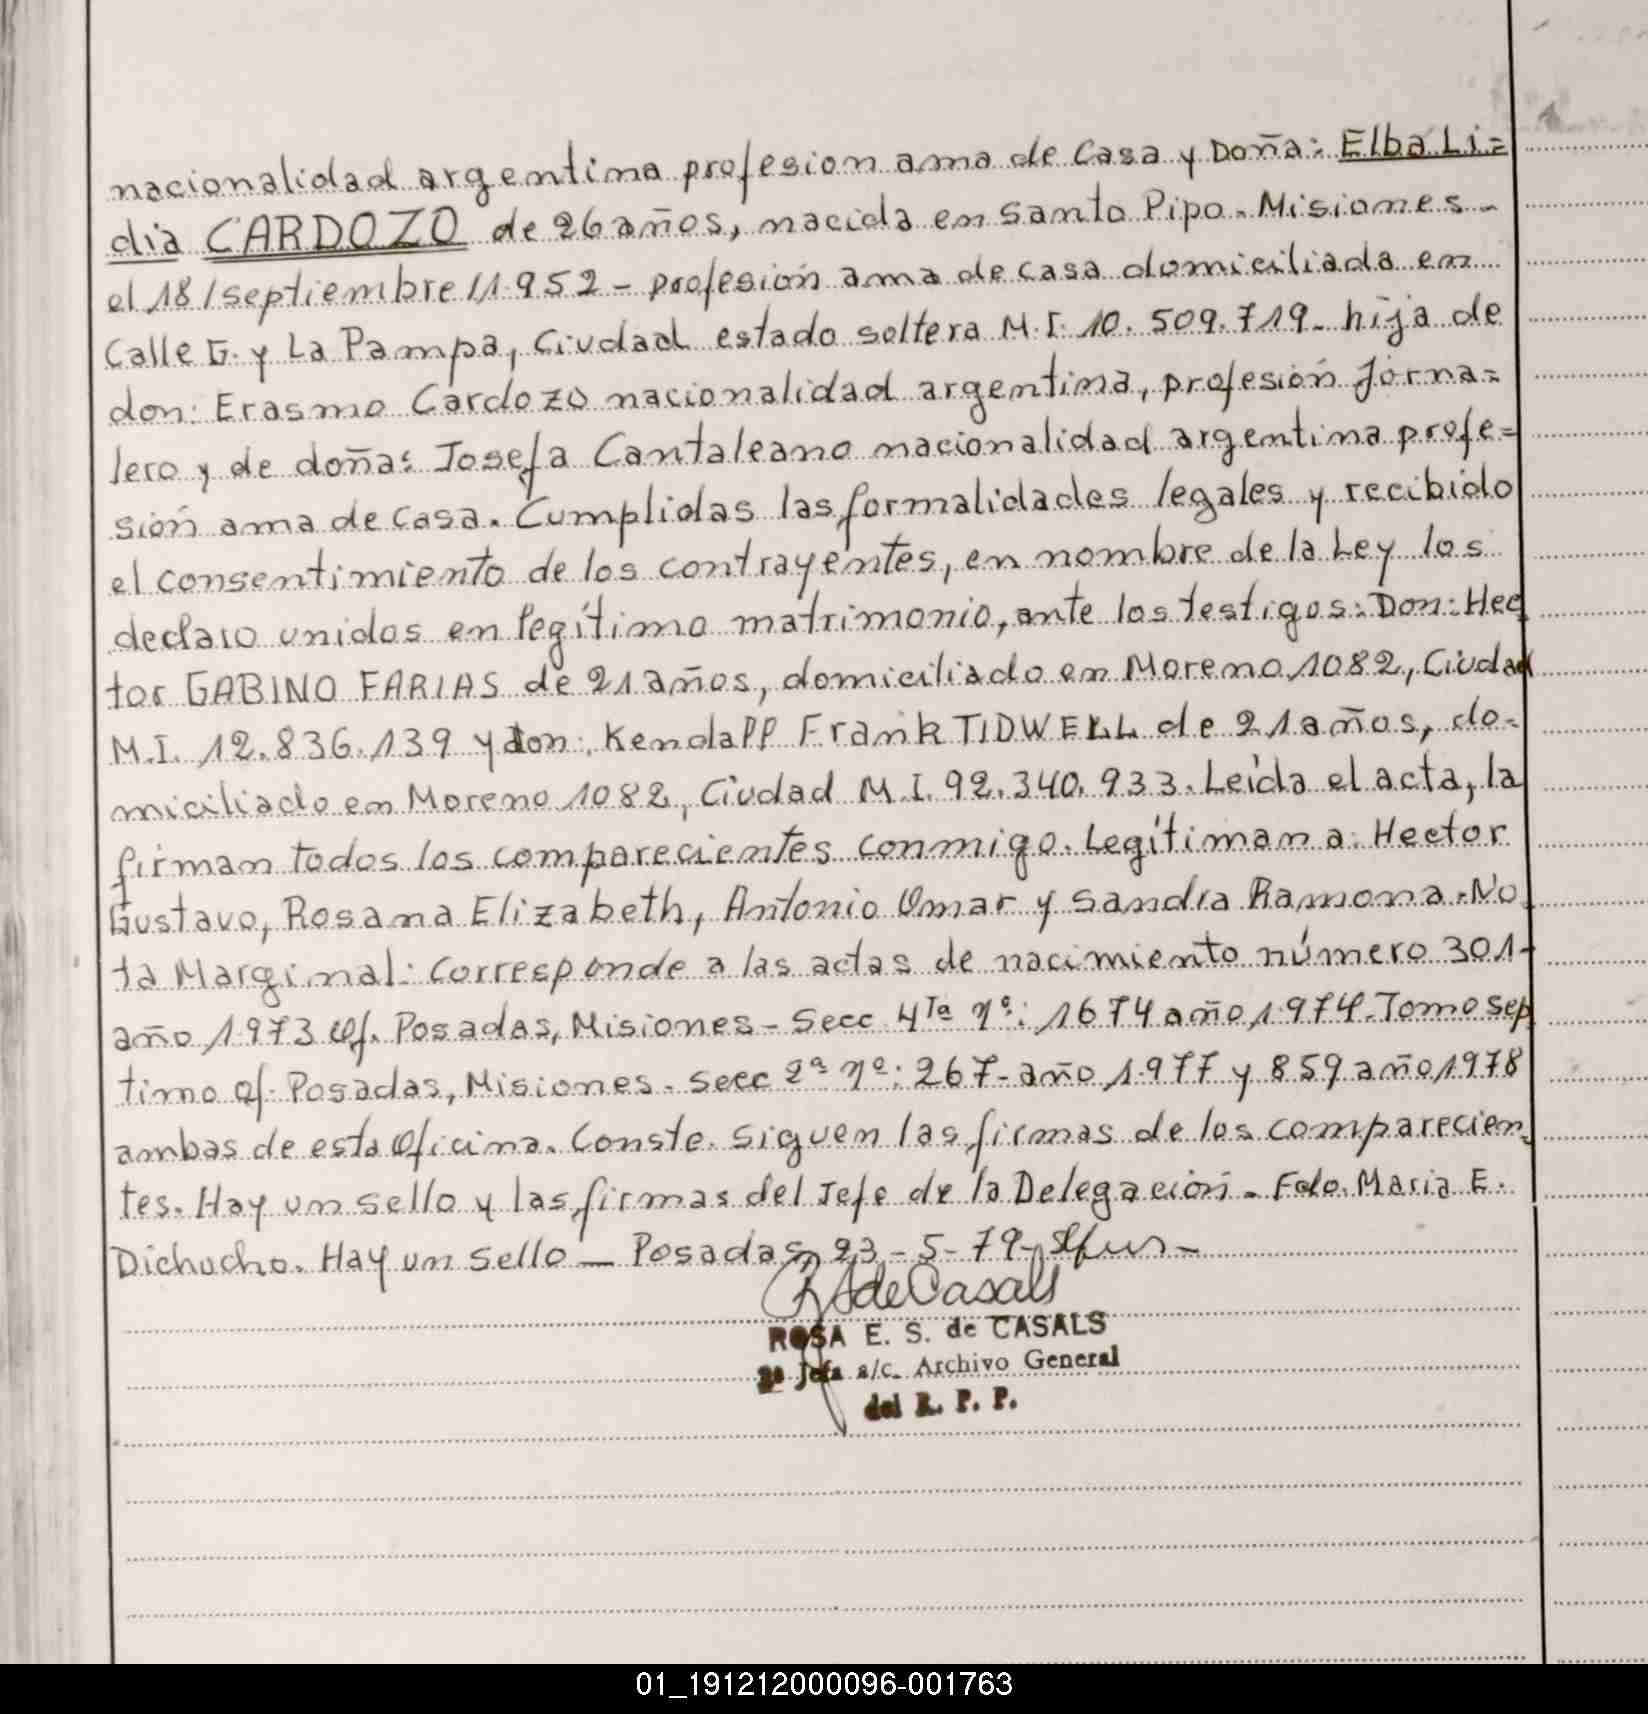 nacionalidad argentina profesion ama de Casa y Doña: Elba Li=
dia CARDOZO de 26 años, nacida en Santo Pipo - Misiones -
el 18/septiembre/1.952 - profesión ama de casa domiciliada en
Calle G. y La Pampa, Ciudad estado soltera M.I. 10.509.719 - hija de
don: Erasmo Cardozo nacionalidad argentina, profesión Jorna=
lero y de doña: Josefa Cantaleano nacionalidad argentina profe=
sión ama de casa. Cumplidas las formalidades legales y recibido
el consentimiento de los contrayentes, en nombre de la Ley los
declaro unidos en legítimo matrimonio, ante los testigos: Don: Hec
tor GABINO FARIAS de 21 años, domiciliado en Moreno 1082, Ciudad
M.I. 12.836.139 y don: Kendall Frank TIDWELL de 21 años, do-
miciliado en Moreno 1082, Ciudad M.I. 92.340.933. Leída el acta, la
firman todos los comparecientes conmigo. Legítiman a: Hector
Gustavo, Rosana Elizabeth, Antonio Omar y Sandra Ramona. No
ta Marginal: Corresponde a las actas de nacimiento número 301-
año 1.973 Of. Posadas, Misiones - Secc 4Ta nº: 1674 año 1.974. Tomo Sep
timo Of. Posadas, Misiones - Secc 2ª nº: 267 - año 1.977 y 859 año 1978
ambas de esta Oficina. Conste. Siguen las firmas de los comparecien
tes. Hay un sello y las firmas del Jefe de la Delegación. Fdo. Maria E.
Dichocho. Hay un sello — Posadas, 23-5-79-
de Casals
ROSA E. S. de CASALS
2ª Jefa a/c. Archivo General
del R. P. P.
01_191212000096-001763